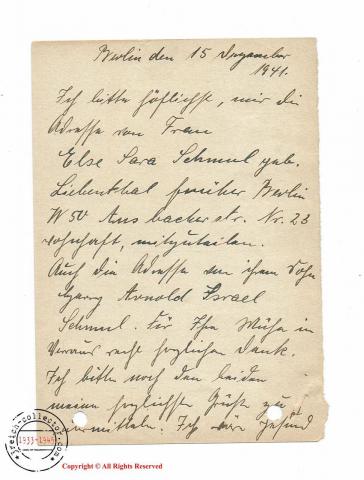 Berlin den 15 Dezember
1941.
Ich bitte höflichst, mir die
Adresse von Frau
Else Sara Schmul geb.
Liebenthal früher Berlin
W 50 Ansbacherstr. Nr. 23
wohnhaft, mitzuteilen.
Auch die Adresse von ihrem Sohn
Georg Arnold Israel
Schmul. Für Ihre Mühe im
Voraus recht herzlichen Dank.
Ich bitte noch den beiden
meine herzlichste Grüße zu
vermitteln. Ich wäre gesund
jreich-collector.com
1933-1945
Copyright © All Rights Reserved